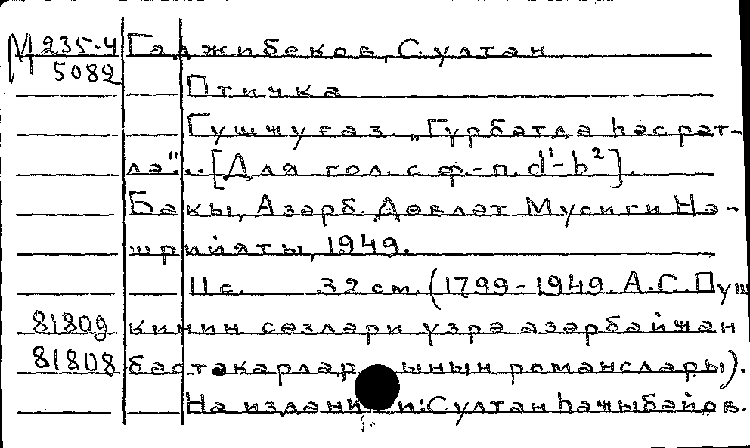 М 235-4 Гаджибеков, Султан
5082
Птичка
Гушчуғаз. „Гүрбатдә һәсрәт-
лә"... [Для гол. с ф.-п. d¹-h²].
Бакы, Азәрб. Девләт Мусиги Нә-
шрийяты, 1949.
11 с. 32 см. (1799-1949. А.С. Пуш
81809 кинин сөзләри үзрә азәрбайҹан
81808 бәстәкарлар ынын романслары).
На издании: Султан Һаҹыбәйов.